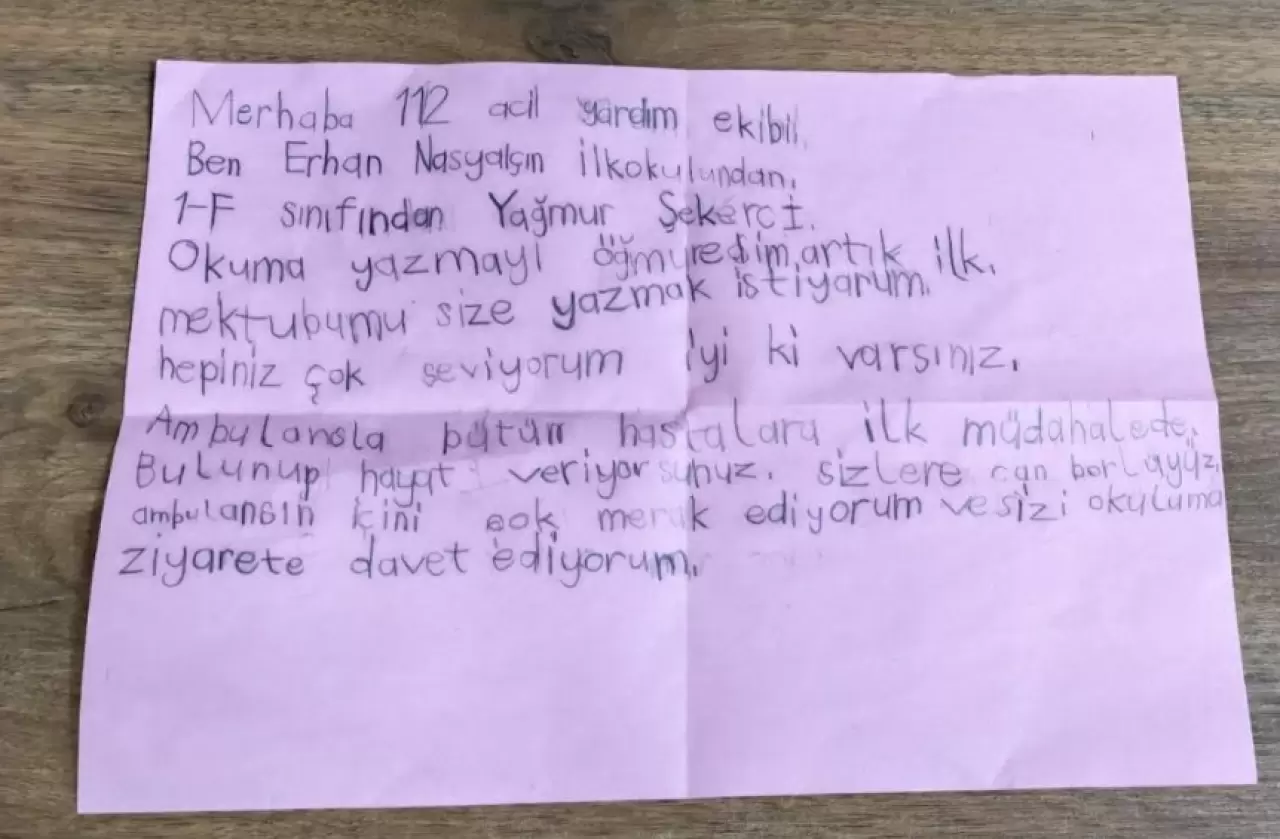 Merhaba 112 acil yardım ekibi.
Ben Erhan Nasyalçın İlkokulundan.
1-F sınıfından Yağmur Şekerci.
Okuma yazmayı artık ilk.
mektubumu size yazmak istiyorum. ilk.
hepiniz çok seviyorum iyi ki varsınız.
Ambulansla bütün hastalara ilk müdahalede.
Bulunup hayat veriyorsunuz. sizlere can borluyuz.
ambulansın içini çok merak ediyorum ve sizi okuluma
ziyarete davet ediyorum.